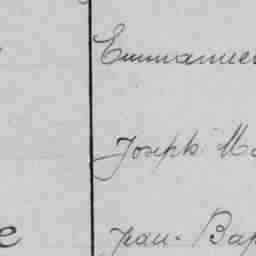 Emmanuel
Joseph Ma
e Jean-Bap